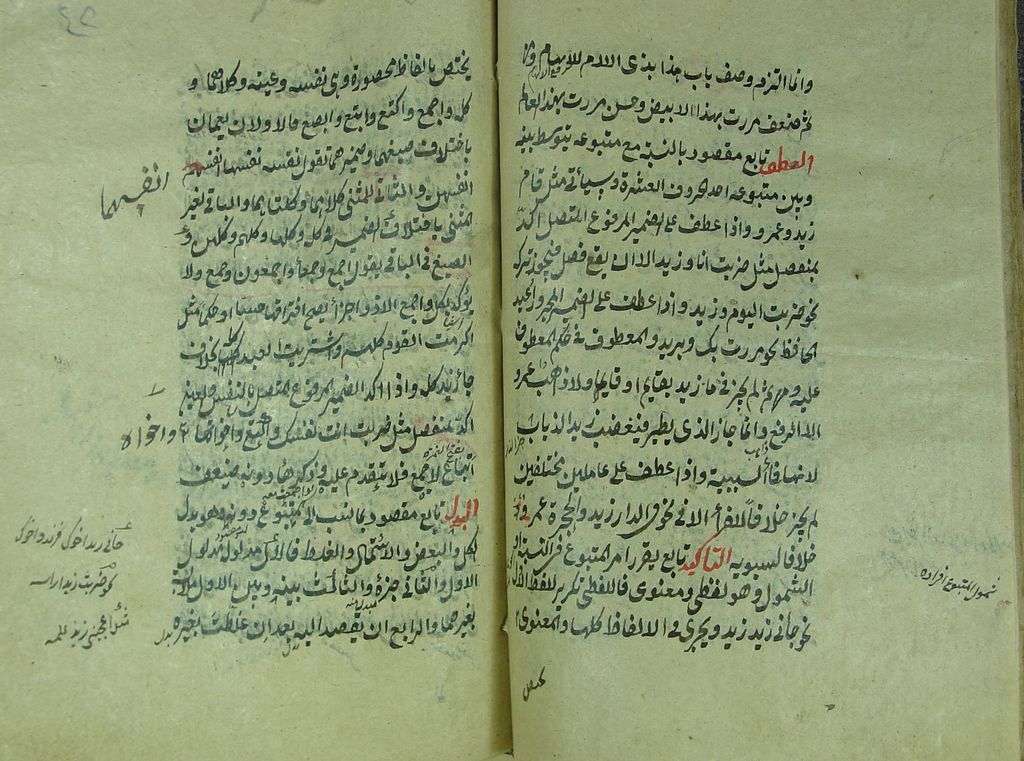 وانما التزم وصف باب هذا بذى اللام للابهام ومن
ثم ضعف مررت بهذا الابيض وحسن مررت بهذا العالم
العطف تابع مقصود بالنسبة مع متبوعه يتوسط بينه
وبين متبوعه احد الحروف العشرة وسيأتي مثل قام
زيد وعمرو واذا عطف على الضمير المرفوع المتصل اكد
بمنفصل مثل ضربت انا وزيد الا ان يقع فصل فيجوز تركه
نحو ضربت اليوم وزيد واذا عطف على الضمير المجرور اعيد
الخافض نحو مررت بك وبزيد والمعطوف في حكم المعطوف
عليه ومن ثم لم يجز في ما زيد بقايم او قايما ولا ذاهب عمرو
الا الرفع وانما جاز الذى يطير فيغضب زيد الذباب
لانها فاء السببية واذا عطف على عاملين مختلفين
لم يجز خلافا للفراء الا في نحو في الدار زيد والحجرة عمرو
خلافا لسيبويه التأكيد تابع يقرر امر المتبوع في النسبة او
الشمول وهو لفظى ومعنوى فاللفظى تكرير للفظ الاول
نحو جائني زيد زيد ويجرى في الالفاظ كلها والمعنوى
شمول المتبوع افراده
يختص بالفاظ محصورة وهى نفسه وعينه وكلاهما و
كله واجمع واكتع وابتع وابصع فالاولان يعمان
باختلاف صيغهما وضميرهما تقول نفسه نفسها انفسهم
انفسهن والثاني للمثنى كلاهما وكلتاهما والباقى لغير
المثنى باختلاف الضمير في كله وكلها وكلهم وكلهن و
الصيغ في الباقى يقول اجمع وجمعاء واجمعون وجمع ولا
يؤكد بكل واجمع الا ذو اجزاء يصح افتراقها حسا او حكما مثل
اكرمت القوم كلهم واشتريت العبد كله بخلاف
جاء زيد كله واذا اكد الضمير المرفوع المتصل بالنفس والعين
اكد بمنفصل مثل ضربت انت نفسك واكتع واخواته
اتباع لاجمع فلا يتقدم عليه وذكرها دونه ضعيف
البدل تابع مقصود بما نسب الى المتبوع دونه وهو بدل
الكل والبعض والاشتمال والغلط فالاول مدلوله مدلول
الاول والثاني جزؤه والثالث بينه وبين الاول ملابسة
بغيرهما والرابع ان يقصد اليه بعد ان غلطت بغيره
انفسهما
واخواه